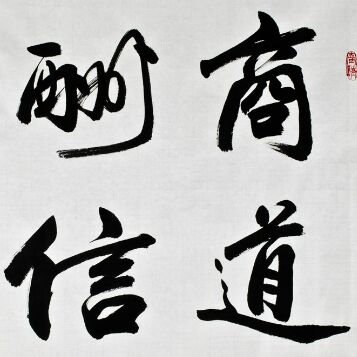 商道
酬信